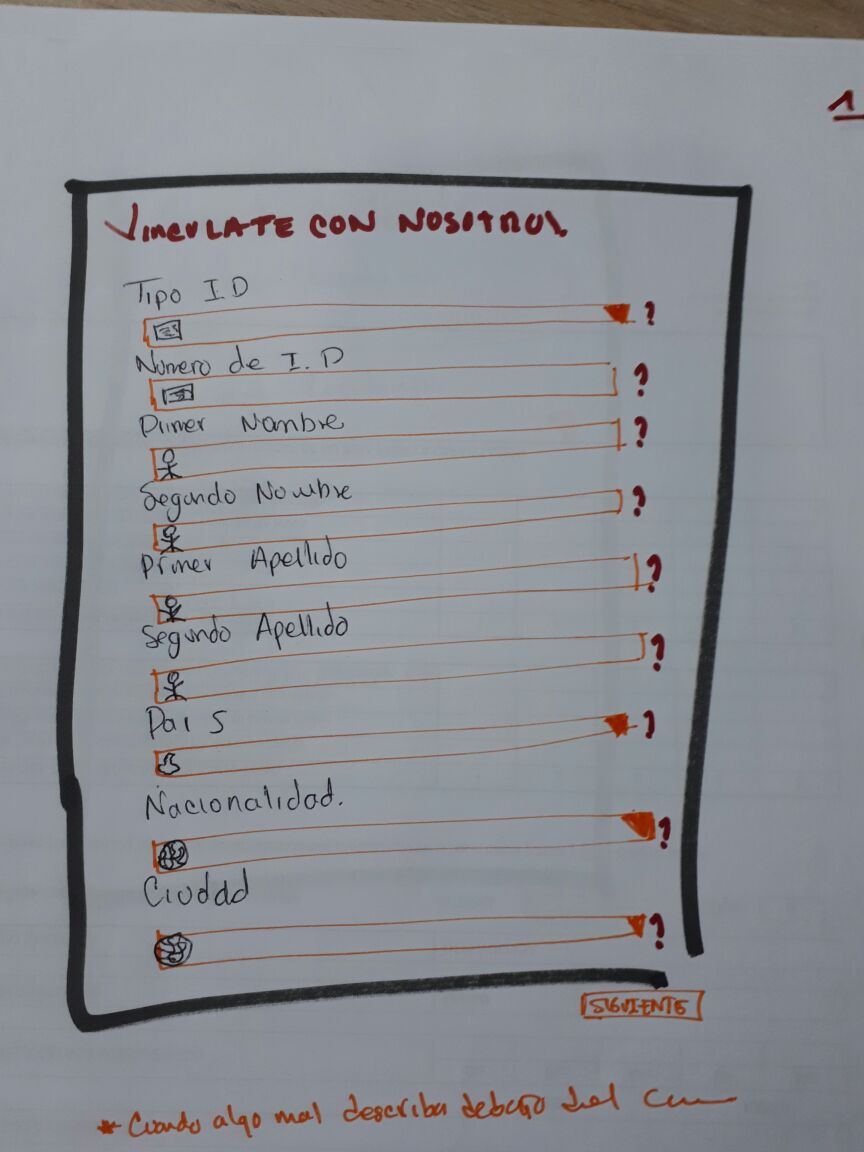 1
VINCULATE CON NOSOTROS
Tipo I.D
?
Número de I.D
?
Primer Nombre
?
Segundo Nombre
?
Primer Apellido
?
Segundo Apellido
?
País
?
Nacionalidad.
?
Ciudad
?
SIGUIENTE
* Cuando algo mal describa debajo del